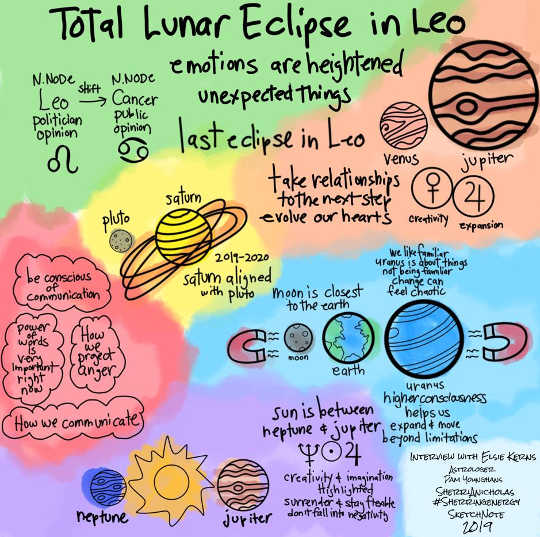 Total Lunar Eclipse in Leo
emotions are heightened
unexpected things
N.Node shift N.Node
Leo Cancer
politician public
opinion opinion
last eclipse in Leo
venus
jupiter
take relationships
to the next step
evolve our hearts
creativity
expansion
saturn
pluto
2019-2020
saturn aligned
with pluto
be conscious
of
communication
power
of
words
is
very
important
right
now
How
we
project
anger
How we communicate
we like familiar
uranus is about things
not being familiar
change can
feel chaotic
moon is closest
to the earth
moon
earth
uranus
higher consciousness
helps us
expand & move
beyond limitations
sun is between
neptune & jupiter
creativity & imagination
highlighted
surrender & stay flexible
don't fall into negativity
neptune
jupiter
Interview with Elsie Kerns
Astrologer
Pam Younghans
SherriANicholas
#SherriNGenergy
SketchNote
2019